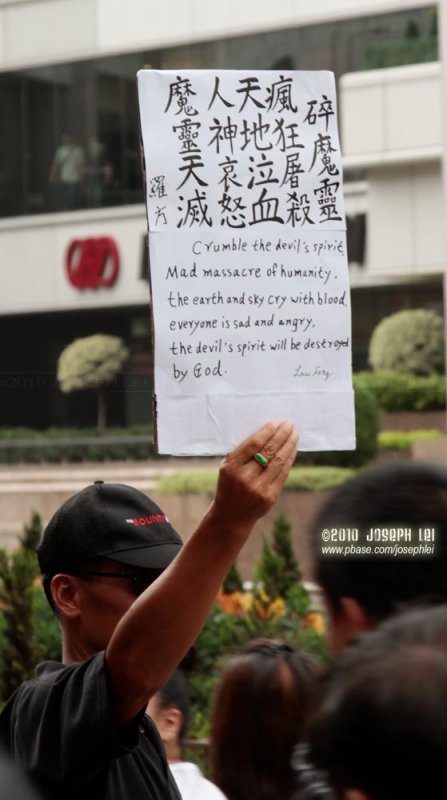 碎魔靈
瘋狂屠殺
天地泣血
人神哀怒
魔靈天滅
羅方
Crumble the devil's spirit,
Mad massacre of humanity.
the earth and sky cry with blood,
everyone is sad and angry,
the devil's spirit will be destroyed
by God.
Law Fong
©2010 JOSEPH LEI
THE BOUNTY
©2010 JOSEPH LEI
www.pbase.com/josephlei